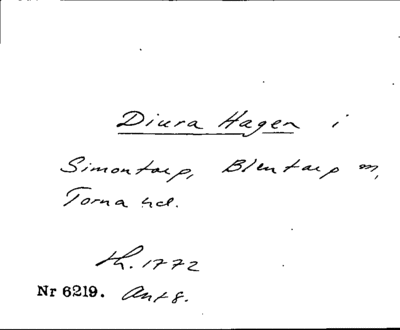 Diura Hagen i
Simontorp, Blentarp m,
Torna hd.
th. 1772
Nr 6219. Ant 8.